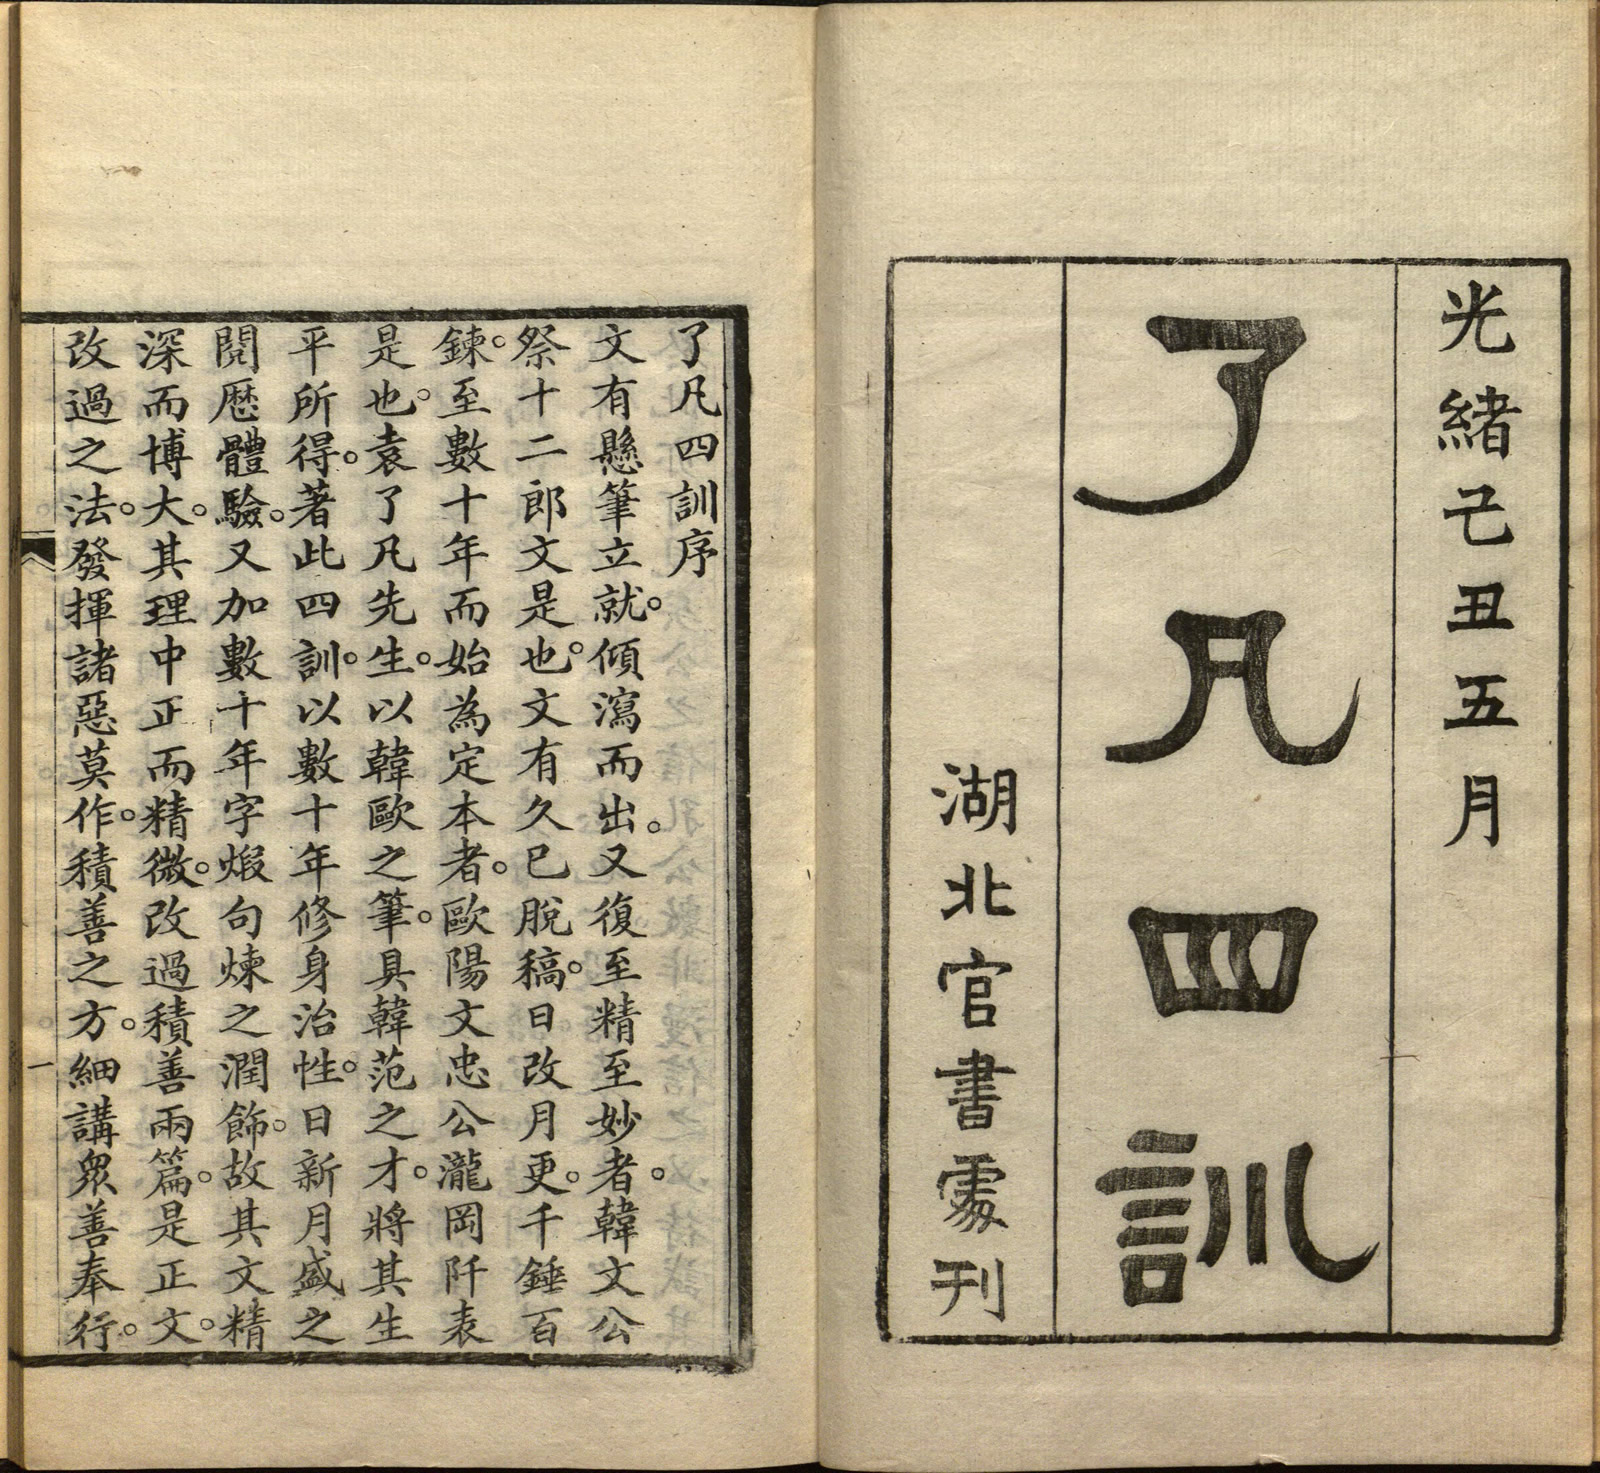 光緒己丑五月
了凡四訓
湖北官書處刊
了凡四訓序
文有懸筆立就。傾瀉而出。又復至精至妙者。韓文公
祭十二郎文是也。文有久已脫稿。日改月更。千錘百
鍊。至數十年而始為定本者。歐陽文忠公瀧岡阡表
是也。袁了凡先生。以韓歐之筆。具韓范之才。將其生
平所得。著此四訓。以數十年修身治性。日新月盛之
閱歷體驗。又加數十年字煅句煉之潤飾。故其文精
深而博大。其理中正而精微。改過積善兩篇。是正文。
改過之法。發揮諸惡莫作。積善之方。細講眾善奉行。
一